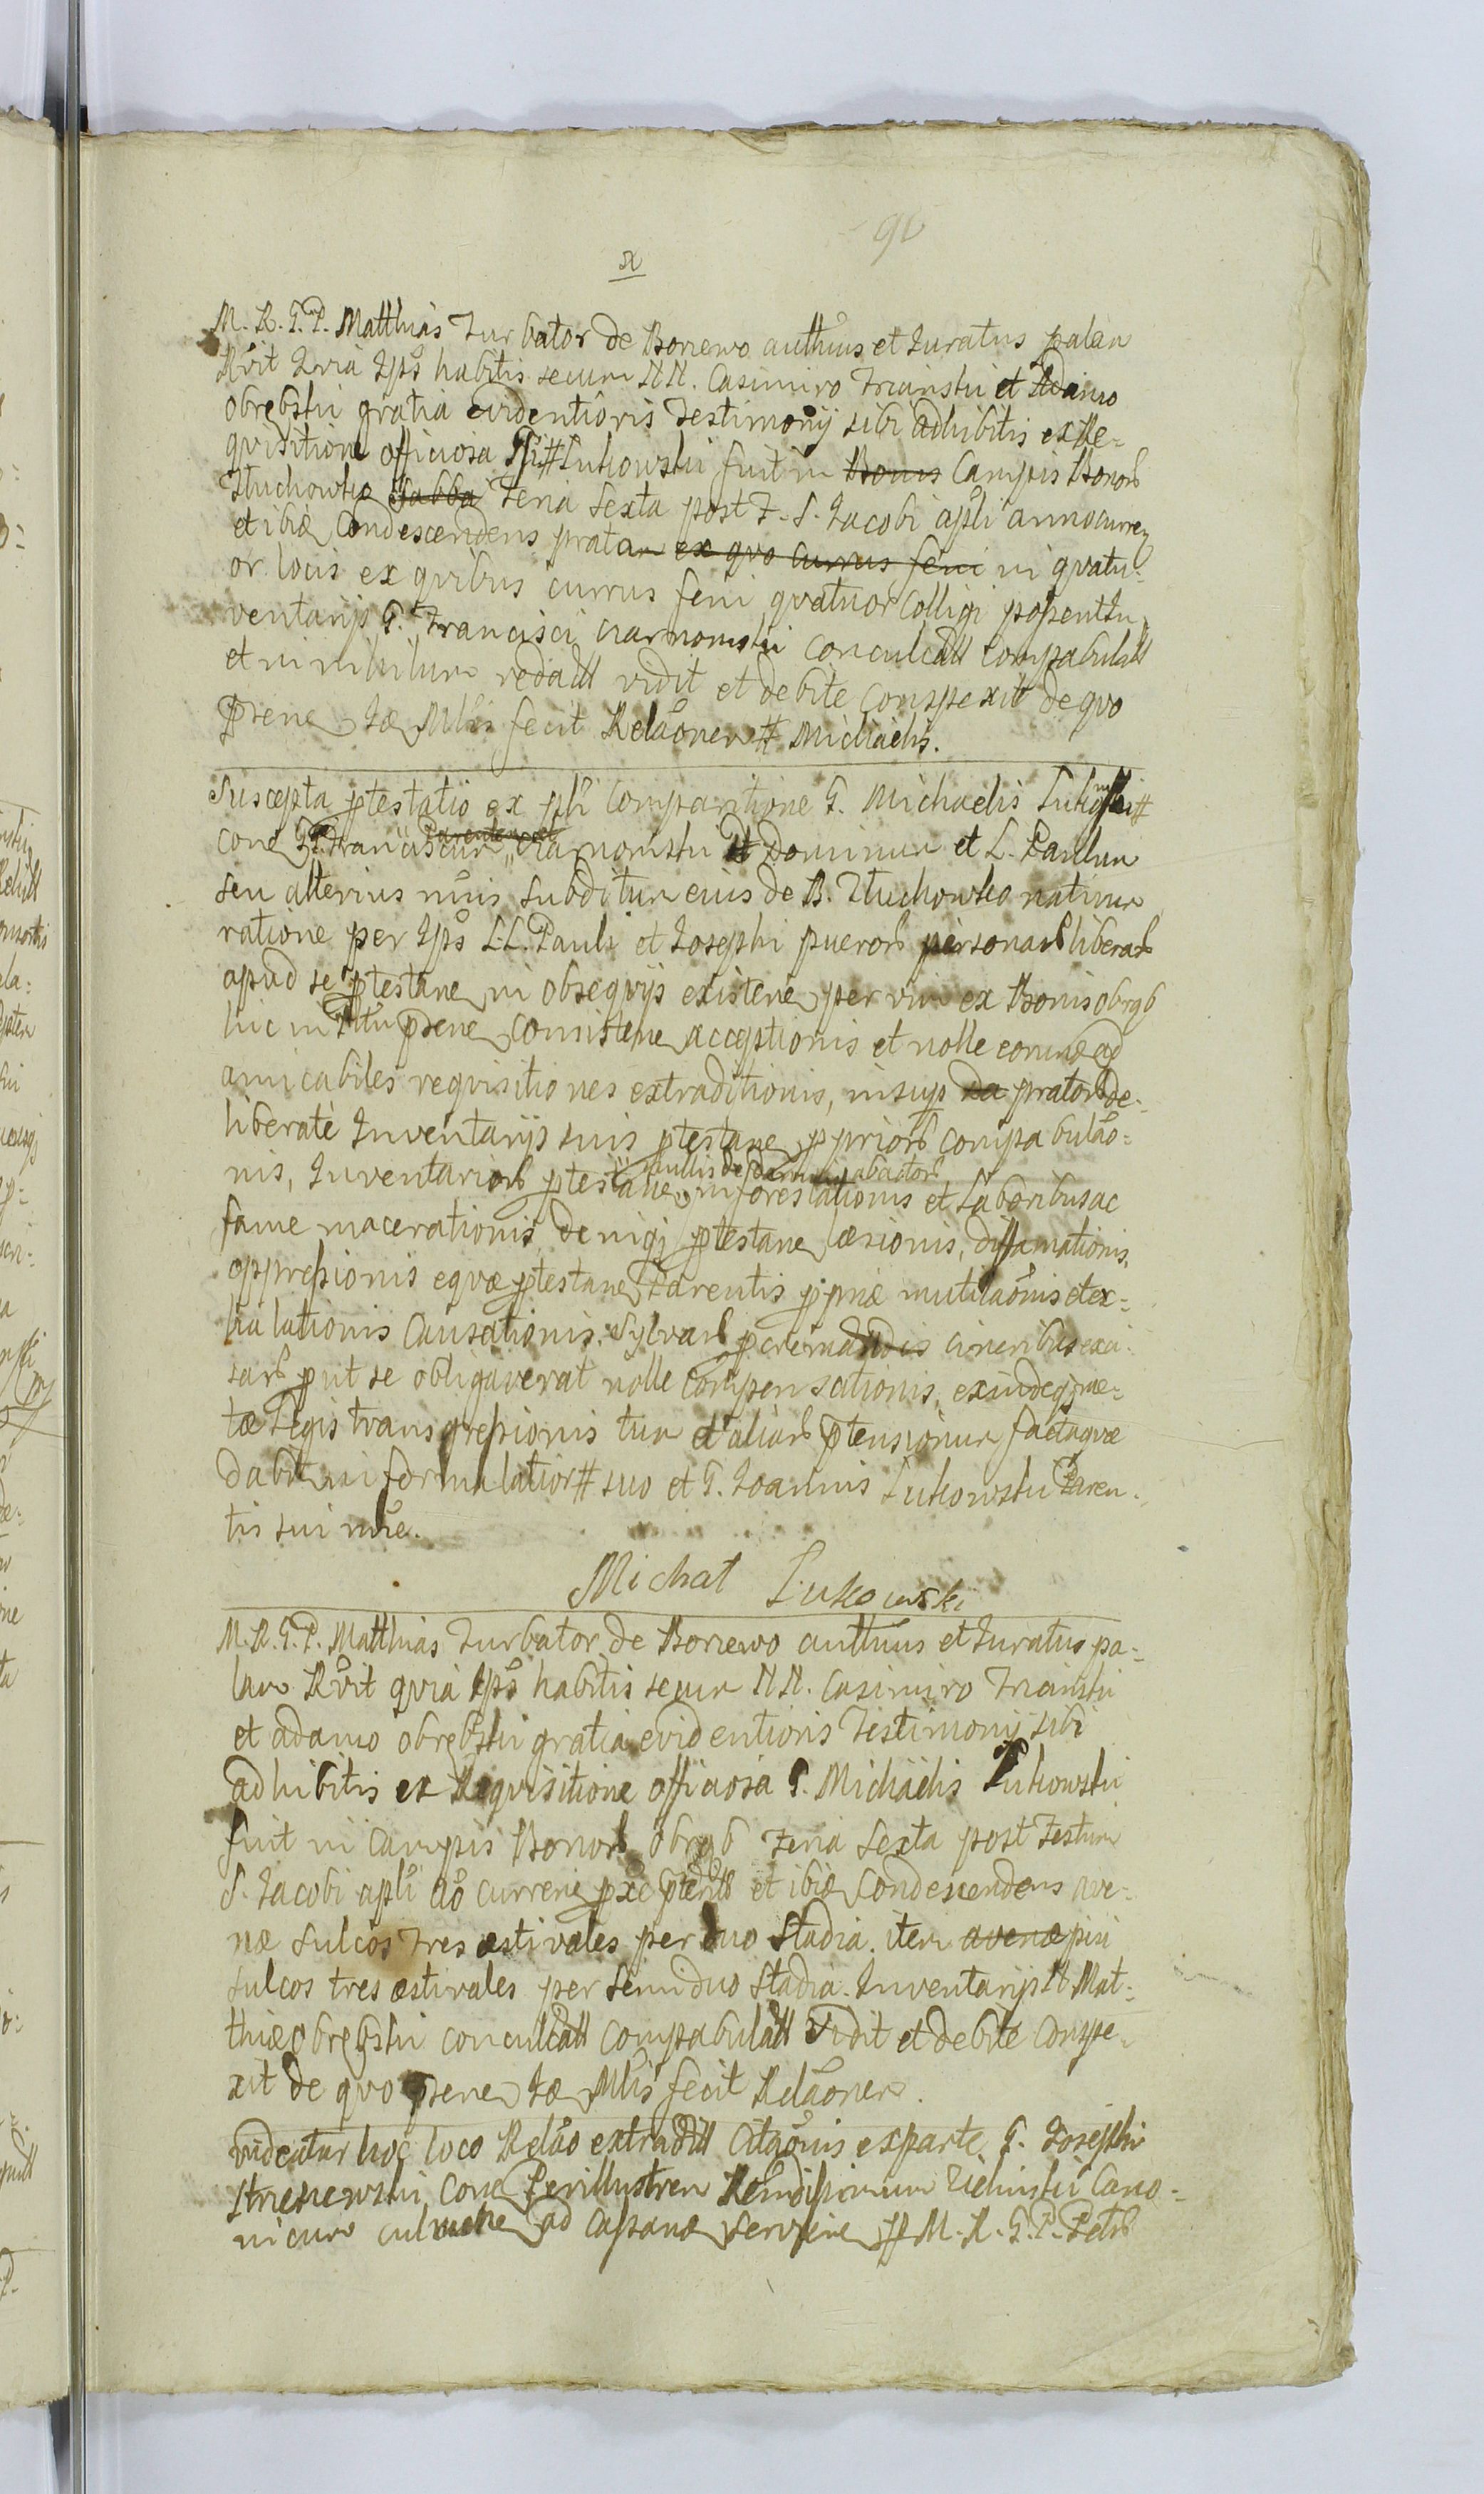 91
M. R. G. P. Matthias Turbator de Borzewo authus et Juratus palam
Rvit Quia Ips habitis secum NN. Casimiro Trcinski et Adamo
Obrębski gratia evidentioris Testimonij sibi adhibitis ex Re=
quisitione officiosa G. # Lukowski fuit in Bonis Campis Bonor
Tłuchowko Sabba Feria Sexta post F. S. Jacobi apli anno curren
et ibiq Condescendens pratum ex quo currus feni in quatu=
or locis ex quibus currus feni quatuor Colligi possent In
ventarijs G. Francisci Czarnomski conculcatt compabulatt
et in nihilum redactt vidit et debite conspexit de quo
prene Jae Mlris fecit Relaonem # Michaelis.
Suscepta ptestatio ex pli Comparitione G. Michaelis Lukowski #
cone G. Franciscum Czarnomski Dominum et L. Paulum
seu alterius nuis subditum eius de B. Tłuchowko natium
ratione per Ips LL. Pauli et Josephi pueror personar liberar
apud se ptestane in obsequijs existene per vim ex Bonis Obrąb
hic in Ttu prene consistene acceptionis et nolle eorumq ad
amicabiles requisitiones extraditionis, insup da prator de=
liberate Inventarijs suis ptestane pprior compabulao=
nis, Inventarior ptestane nullis de damnis abactor
inforestationis et Laboribus ac
fame macerationis, deniq ptestane læsionis, diffamationis,
oppressionis equæ ptestane Parentis ppriæ mutilaonis et ex=
halationis Causationis. Sylvar p cremandis cineribus exci
sar put se obligaverat nolle compensationis, exindeq me=
tæ Legis transgressionis tum et aliar ptensionum facta quæ
dabit in formulatior # suo et G. Joannis Lukowski Paren=
tis sui noie.
Michał Łukowski
M. R. G. P. Matthias Turbator de Borzewo authus et Juratus pa=
lam Rvit quia Ips habitis secum NN. Casimiro Trcinski
et adamo obrębski gratia evidentioris Testimonij sibi
adhibitis ex Requisitione officiosa G. Michaelis Lukowski
fuit in Campis Bonor Obrąb Feria Sexta post Festum
S. Jacobi apli ao currene pxe pterito et ibiq Condescendens ave=
næ sulcos tres æstivales per duo Stadia. item avenæ pisi
sulcos tres æstivales per semiduo Stadia. Inventarijs N Mat=
thiæ Obrębski conculcatt compabulatt Vidit et debite Conspe=
xit de quo prene Jae Mlris fecit Relaonem.
videatur hoc loco Relao extraditt Citaonis ex parte G. Josephi
Strzeszewski Cone Perillustrem Rendissimum Zielinski Cano=
nicum ad Capane Servjene p M. R. G. P. Petr